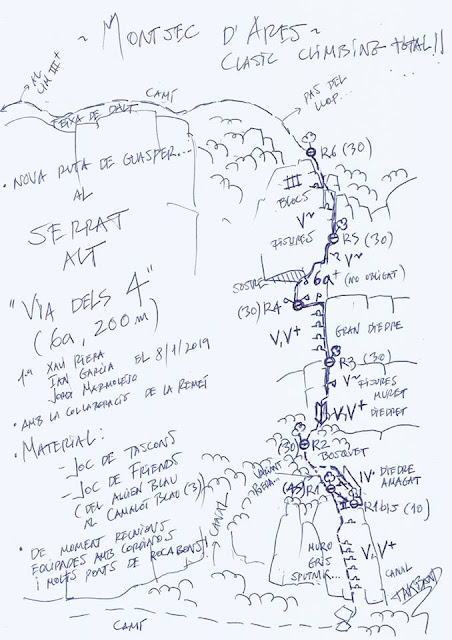 ~ MONTSEC D'ARES ~
CLASIC CLIMBING TOTAL!!
AL CIM III+
CAMÍ
FEIXA DE DALT
PAS DEL LLOP...
• NOVA RUTA DE GUASPER...
AL
SERRAT
ALT
"VIA DELS 4"
(6a, 200m)
1ª XAVI RIERA
IAN GARCIA EL 8/1/2019
JORDI MARMOLEJO
• AMB LA COL·LABORACIÓ DE LA REMEI
• MATERIAL:
- JOC DE TASCONS
- JOC DE FRIENDS
(DEL ALIEN BLAU
AL CAMALOT BLAU (3)
• DE MOMENT REUNIONS
EQUIPADES AMB CORDINOS
I MOLTS PONTS DE ROCA BONS!
R6 (30)
III
BLOCS
V~
FISURES
R5 (30)
V~
SOSTRE
6a+ (NO OBLIGAT)
(30) R4
V, V+
GRAN DIEDRE
R3 (30)
V~ FISURES
MURET
V, V+ DIEDRET
(30) R2
BOSQUET
IV+ DIEDRE
AMAGAT
(45) R1
II
R1bis (10)
CANAL
MURO
GRIS
SPUTNIK...
V, V+
CANAL
CAMÍ